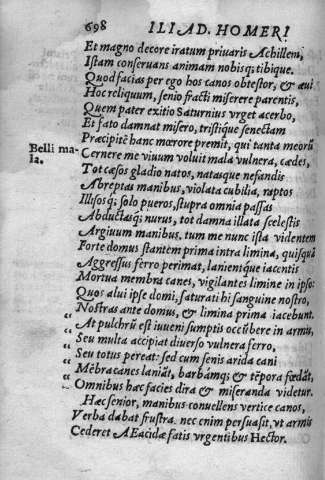 698 ILIAD. HOMERI
Et magno decore iratum priuaris Achillem,
Istam conseruans animam nobisq; tibique.
Quod facias per ego hos canos obtestor, & æui
Hoc reliquum, senio fracti miserere parentis,
Quem pater exitio Saturnius vrget acerbu,
Et fato damnat misero, tristique senectam
Præcipitē hanc mœrore premit, qui tanta meorū
Belli ma-
la.
Cernere me viuum voluit mala vulnera, cædes,
Tot cæsos gladio natos, natasque nefandis
Abreptas manibus, violata cubilia, raptos
Illisosq; solo pueros, stupra omnia passas
Abductasq; nurus, tot damna illata scelestis
Argiuum manibus. tum me nunc ista videntem
Forte domus stantem prima intra limina, quisquā
Aggressus ferro perimat, lanientque iacentis
Mortua membra canes, vigilantes limine in ipso:
Quos alui ipse domi, saturati hi sanguine nostro,
„ Nostras ante domus, & limina prima iacebunt.
„ At pulchrū est iuueni sumptis occūbere in armis,
„ Seu multa accipiat diuerso vulnera ferro,
„ Seu totus pereat: sed cum senis arida cani
„ Mēbra canes laniāt, barbāmq; & tēpora fœdāt,
„ Omnibus hæc facies dira & miseranda videtur.
Hæc senior, manibus conuellens vertice canos,
Verba dabat frustra. nec enim persuasit, vt armis
Cederet AEacidæ fatis vrgentibus Hector.